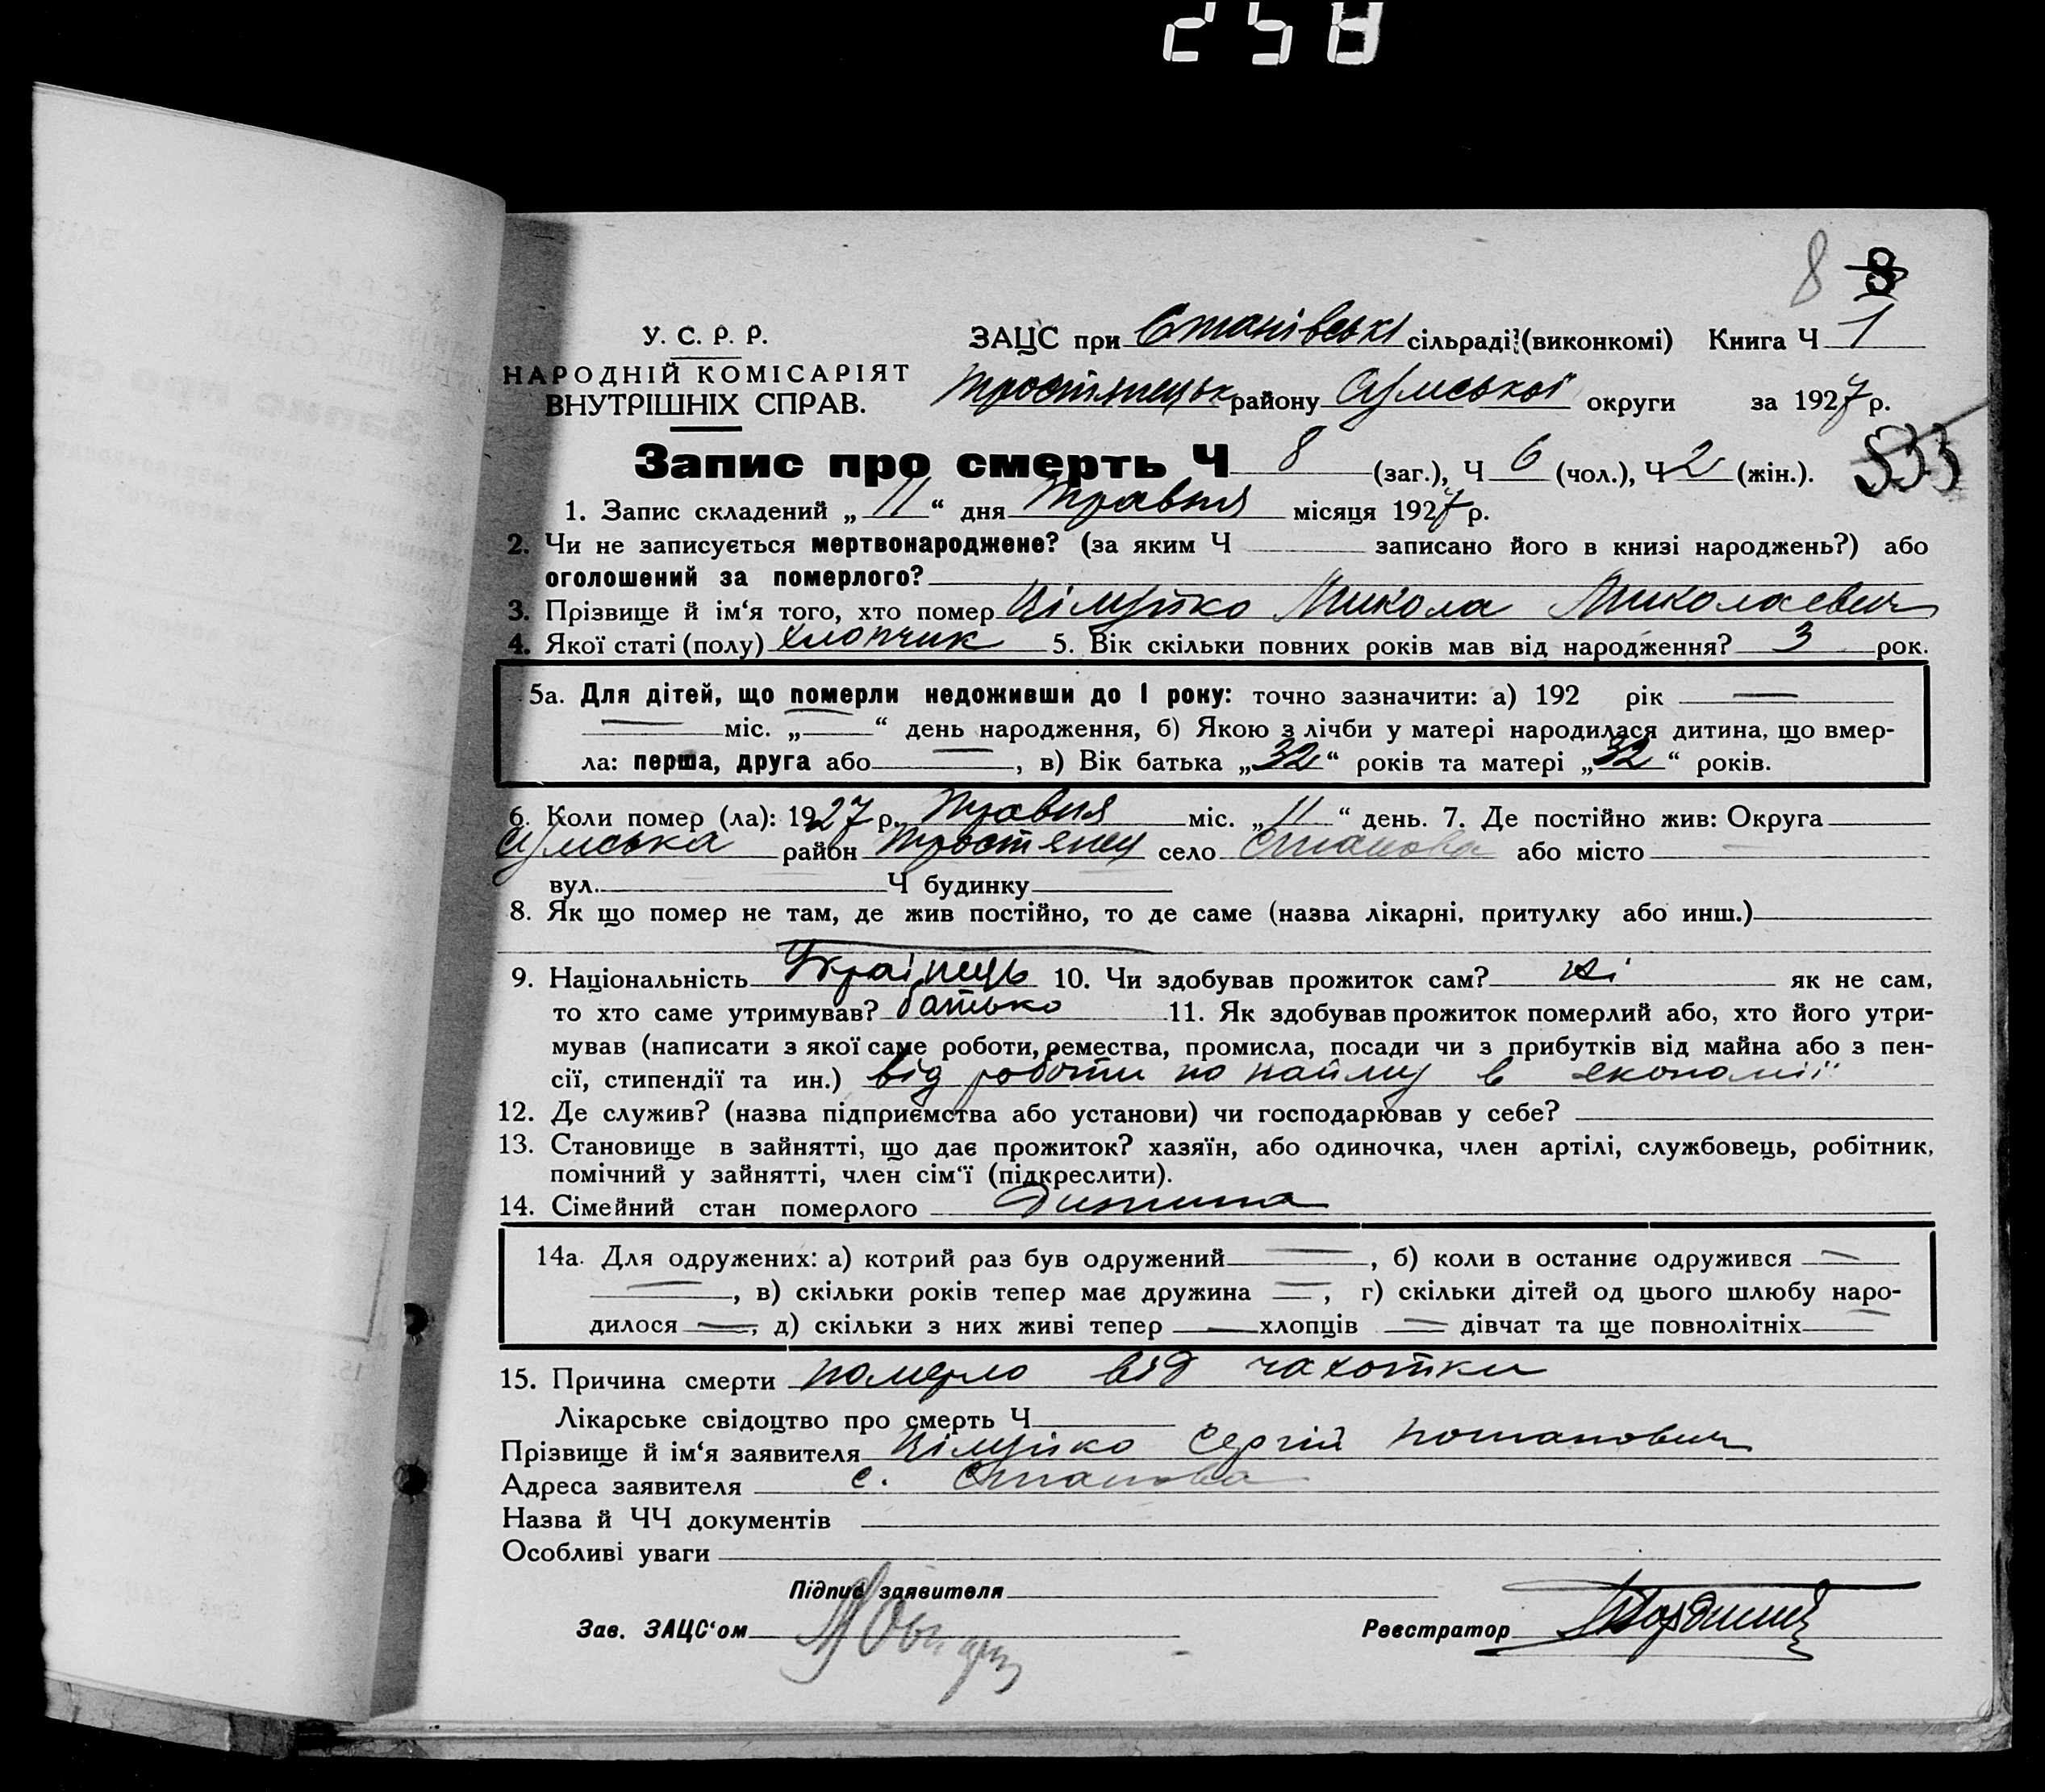 258
8 8
У. С. Р. Р.
НАРОДНІЙ КОМІСАРІЯТ
ВНУТРІШНІХ СПРАВ.
ЗАЦС при Станівські сільраді (виконкомі) Книга Ч 1
Тростянецьк району Сумської округи за 1927 р.
533
Запис про смерть Ч 8 (заг.), Ч 6 (чол.), Ч 2 (жін.).
1. Запис складений „ 11 “ дня Травня місяця 1927 р.
2. Чи не записується мертвонароджене? (за яким Ч записано його в книзі народжень?) або
оголошений за померлого?
3. Прізвище й ім‘я того, хто помер Микола Миколаевич
4. Якої статі (полу) хлопчик 5. Вік скільки повних років мав від народження? 3 рок.
5а. Для дітей, що померли недоживши до І року: точно зазначити: а) 192 рік —
— міс. „—“ день народження, б) Якою з лічби у матері народилася дитина, що вмер-
ла: перша, друга або —, в) Вік батька „32“ років та матері „32“ років.
6. Коли помер (ла): 1927 р. Травня міс. „ 11 “ день. 7. Де постійно жив: Округа
Сумська район Тростянец село Станова або місто —
вул. Ч будинку
8. Як що помер не там, де жив постійно, то де саме (назва лікарні, притулку або инш.)
9. Національність Українець 10. Чи здобував прожиток сам? ні як не сам,
то хто саме утримував? батько 11. Як здобував прожиток померлий або, хто його утри-
мував (написати з якої саме роботи, ремества, промисла, посади чи з прибутків від майна або з пен-
сії, стипендії та ин.) від роботи по найму в економії
12. Де служив? (назва підприємства або установи) чи господарював у себе?
13. Становище в зайнятті, що дає прожиток? хазяїн, або одиночка, член артілі, службовець, робітник,
помічний у зайнятті, член сім‘ї (підкреслити).
14. Сімейний стан померлого Дитина
14а. Для одружених: а) котрий раз був одружений —, б) коли в останнє одружився —
—, в) скільки років тепер має дружина —, г) скільки дітей од цього шлюбу наро-
дилося —, д) скільки з них живі тепер — хлопців — дівчат та ще повнолітніх —
15. Причина смерти померло від чахотки
Лікарське свідоцтво про смерть Ч
Прізвище й ім‘я заявителя Сергій Потапович
Адреса заявителя с. Станова
Назва й ЧЧ документів
Особливі уваги
Підпис заявителя
Зав. ЗАЦС‘ом
Реєстратор